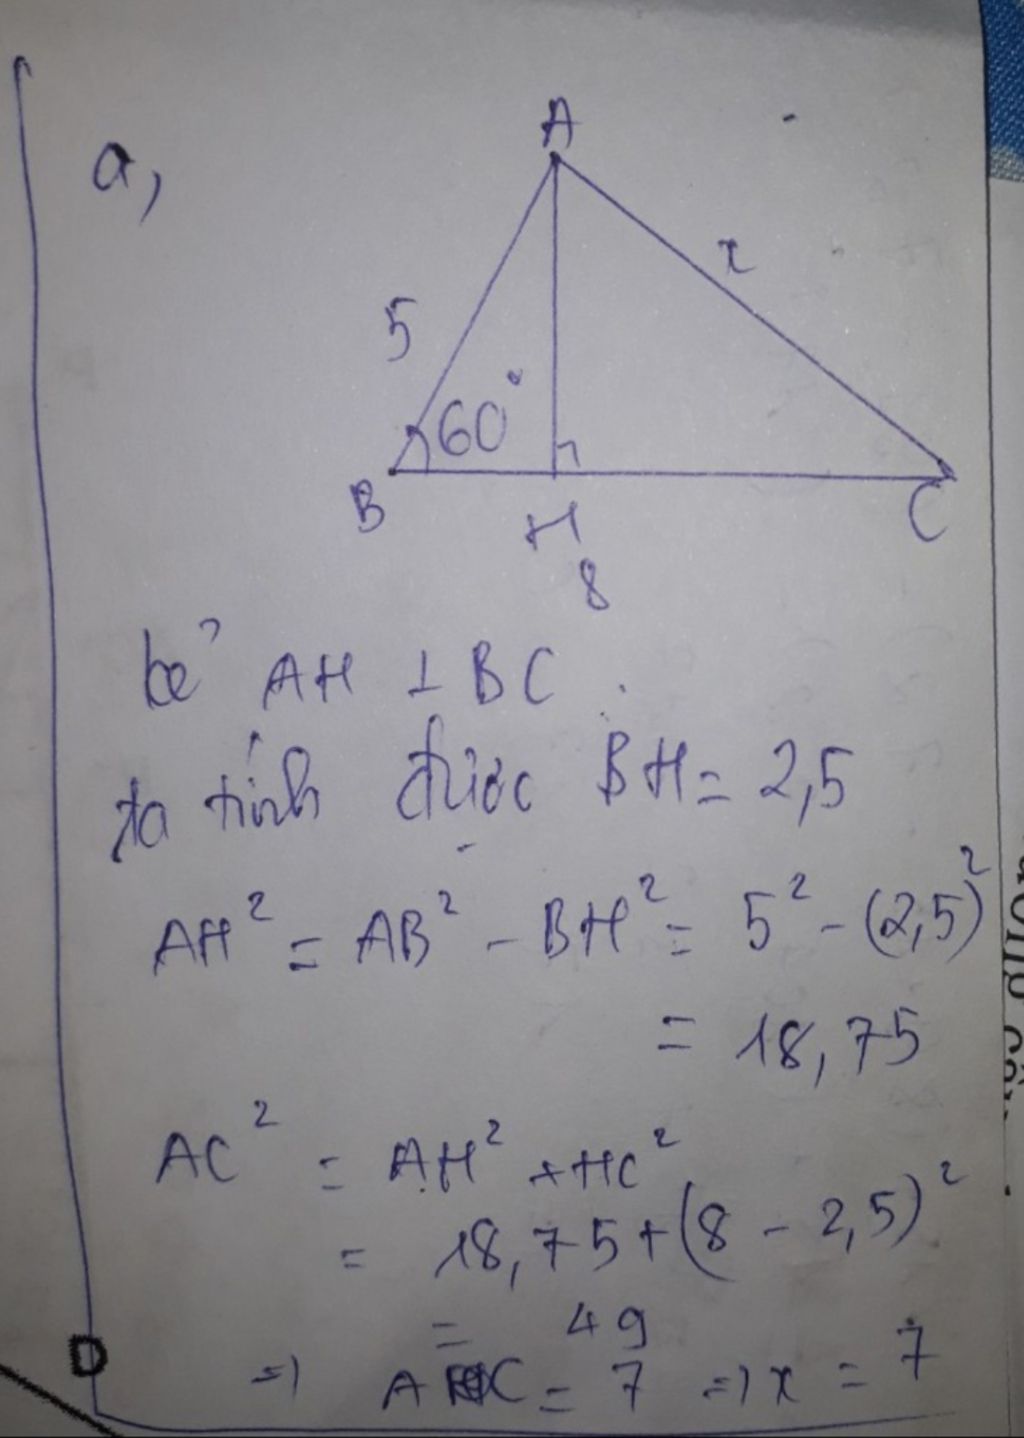 a,
A
x
5
60°
B
H
C
8
kẻ AH ⊥ BC.
ta tính được BH = 2,5
AH² = AB² - BH² = 5² - (2,5)²
= 18,75
AC² = AH² + HC²
= 18,75 + (8 - 2,5)²
= 49
=) AC = 7 =) x = 7